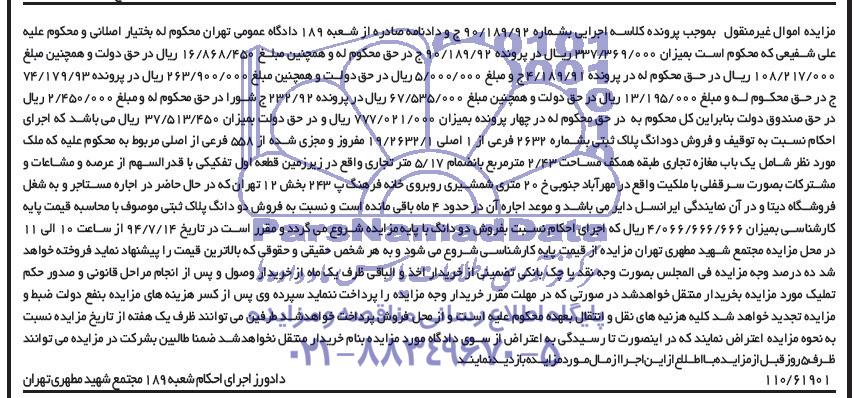 مزایده اموال غیرمنقول بموجب پرونده کلاسه اجرایی بشماره ۹۰/۱۸۹/۹۲ ج و دادنامه صادره از شعبه ۱۸۹ دادگاه عمومی تهران محکوم له بختیار اصلانی و محکوم علیه
علی شفیعی که محکوم است بمیزان ۳۳۷/۳۶۹/۰۰۰ ریال در پرونده ۹۰/۱۸۹/۹۲ ج در حق محکوم له و همچنین مبلغ ۱۶/۸۶۸/۴۵۰ ریال در حق دولت و همچنین مبلغ
۱۰۸/۲۱۷/۰۰۰ ریال در حق محکوم له در پرونده ۴/۱۸۹/۹۱ ج و مبلغ ۵/۰۰۰/۰۰۰ ریال در حق دولت و همچنین مبلغ ۲۶۳/۹۰۰/۰۰۰ ریال در پرونده ۷۴/۱۷۹/۹۳
ج در حق محکوم له و مبلغ ۱۳/۱۹۵/۰۰۰ ریال در حق دولت و همچنین مبلغ ۶۷/۵۳۵/۰۰۰ ریال در پرونده ۲۳۲/۹۲ ج شورا در حق محکوم له و مبلغ ۲/۴۵۰/۰۰۰ ریال
در حق صندوق دولت بنابراین کل محکوم به در حق محکوم له در چهار پرونده بمیزان ۷۷۷/۰۲۱/۰۰۰ ریال و در حق دولت بمیزان ۳۷/۵۱۳/۴۵۰ ریال می باشد که اجرای
احکام نسبت به توقیف و فروش دودانگ پلاک ثبتی بشماره ۲۶۳۲ فرعی از ۱ اصلی ۱۹/۲۶۳۲/۱ مفروز و مجزی شده از ۵۵۸ فرعی از اصلی مربوط به محکوم علیه که ملک
مورد نظر شامل یک باب مغازه تجاری طبقه همکف مساحت ۲/۴۳ مترمربع بانضمام ۵/۱۷ متر تجاری واقع در زیرزمین قطعه اول تفکیکی با قدرالسهم از عرصه و مشاعات و
مشترکات بصورت سرقفلی با ملکیت واقع در مهرآباد جنوبی خ ۲۰ متری شمشیری روبروی خانه فرهنگ پ ۲۴۳ بخش ۱۲ تهران که در حال حاضر در اجاره مستاجر و به شغل
فروشگاه دیتا و در آن نمایندگی ایرانسل دایر می باشد و موعد اجاره آن در حدود ۴ ماه باقی مانده است و نسبت به فروش دو دانگ پلاک ثبتی موصوف با محاسبه قیمت پایه
کارشناسی بمیزان ۴/۰۶۶/۶۶۶/۶۶۶ ریال که اجرای احکام نسبت بفروش دو دانگ با پایه مزایده شروع می گردد و مقرر است در تاریخ ۹۴/۷/۱۴ از ساعت ۱۰ الی ۱۱
در محل مزایده مجتمع شهید مطهری تهران مزایده از قیمت پایه کارشناسی شروع می شود و به هر شخص حقیقی و حقوقی که بالاترین قیمت را پیشنهاد نماید فروخته خواهد
شد ده درصد وجه مزایده فی المجلس بصورت وجه نقد یا چک بانکی تضمینی از خریدار اخذ و الباقی ظرف یک ماه از خریدار وصول و پس از انجام مراحل قانونی و صدور حکم
تملیک مورد مزایده بخریدار منتقل خواهدشد در صورتی که در مهلت مقرر خریدار وجه مزایده را پرداخت ننماید سپرده وی پس از کسر هزینه های مزایده بنفع دولت ضبط و
مزایده تجدید خواهد شد کلیه هزینه های نقل و انتقال بعهده محکوم علیه است و از محل فروش پرداخت خواهدشد طرفین می توانند ظرف یک هفته از تاریخ مزایده نسبت
به نحوه مزایده اعتراض نمایند که در اینصورت تا رسیدگی به اعتراض از سوی دادگاه مورد مزایده بنام خریدار منتقل نخواهدشد ضمنا طالبین بشرکت در مزایده می توانند
ظرف ۵ روز قبل از مزایده با اطلاع از این اجرا از مال مورد مزایده بازدید نمایند
۱۱۰/۶۱۹۰۱ دادورز اجرای احکام شعبه ۱۸۹ مجتمع شهید مطهری تهران
ParsNamadData
پایگاه اطلاع رسانی مناقصه و مزایده
۰۲۱-۸۸۳۴۹۶۷۰-۵